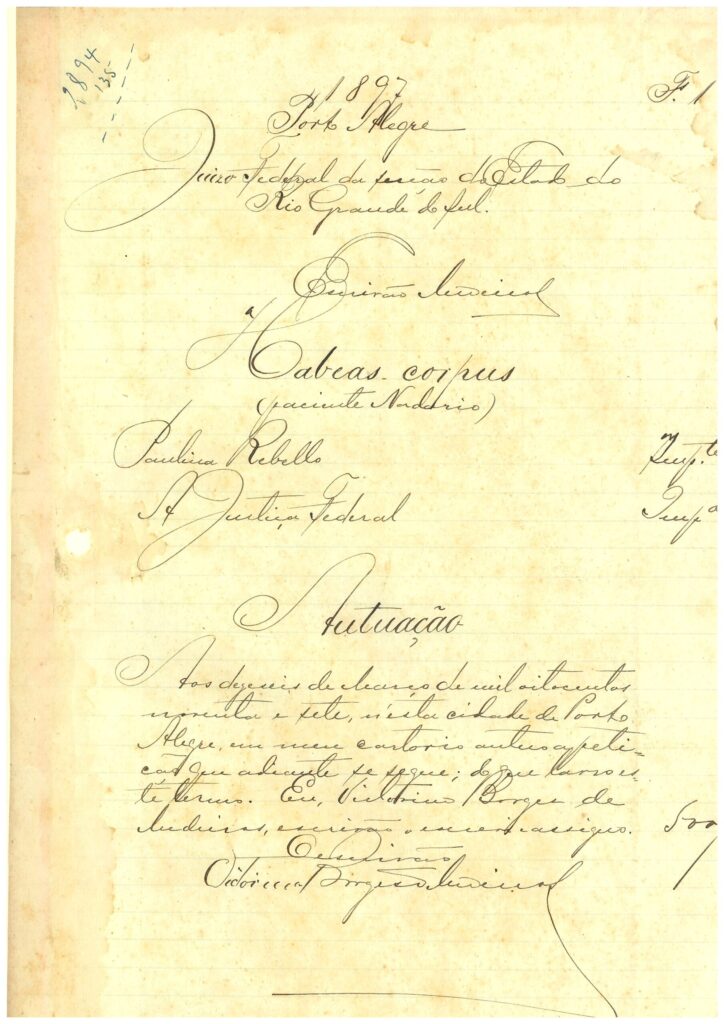 2894
135
1897
F. 1
Porto Alegre
Juizo Federal da secção do Estado do
Rio Grande do Sul.
Escrivão Medeiros
Habeas-corpus
(paciente Nadario)
Paulina Rebello Imp.te
A Justiça Federal Imp.a
Autuação
Aos dezeseis de Março de mil oitocentos
noventa e sete, n'esta cidade de Porto
Alegre, em meu cartorio autuo a peti-
ção que adiante se segue; do que lavro es-
te termo. Eu, Victorino Borges de
Medeiros, escrivão, o escrevi e assigno.
500
O escrivão
Victorino Borges de Medeiros